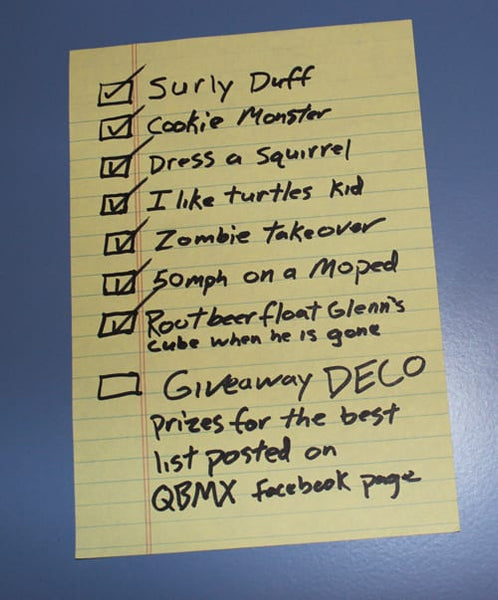 Surly Duff
Cookie Monster
Dress a Squirrel
I like turtles kid
Zombie takeover
50mph on a Moped
Rootbeer float Glenn's
cube when he is gone
Giveaway DECO
prizes for the best
list posted on
QBMX facebook page